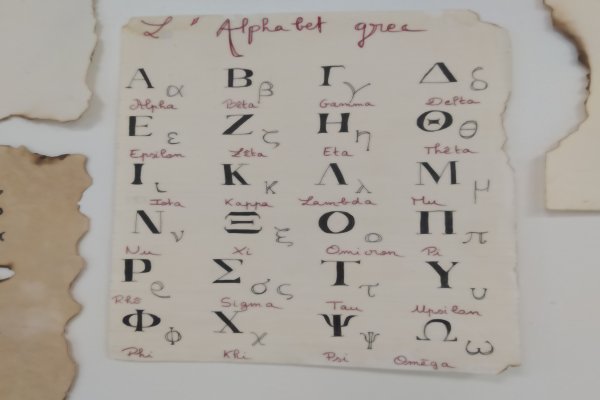 L'Alphabet grec
Α α Β β Γ γ Δ δ
Alpha Bêta Gamma Delta
Ε ε Ζ ζ Η η Θ θ
Epsilon Zêta Eta Thêta
Ι ι Κ κ Λ λ Μ μ
Iota Kappa Lambda Mu
Ν ν Ξ ξ Ο ο Π π
Nu Xi Omicron Pi
Ρ ρ Σ σ ς Τ τ Υ υ
Rhô Sigma Tau Upsilon
Φ φ Χ χ Ψ ψ Ω ω
Phi Khi Psi Oméga